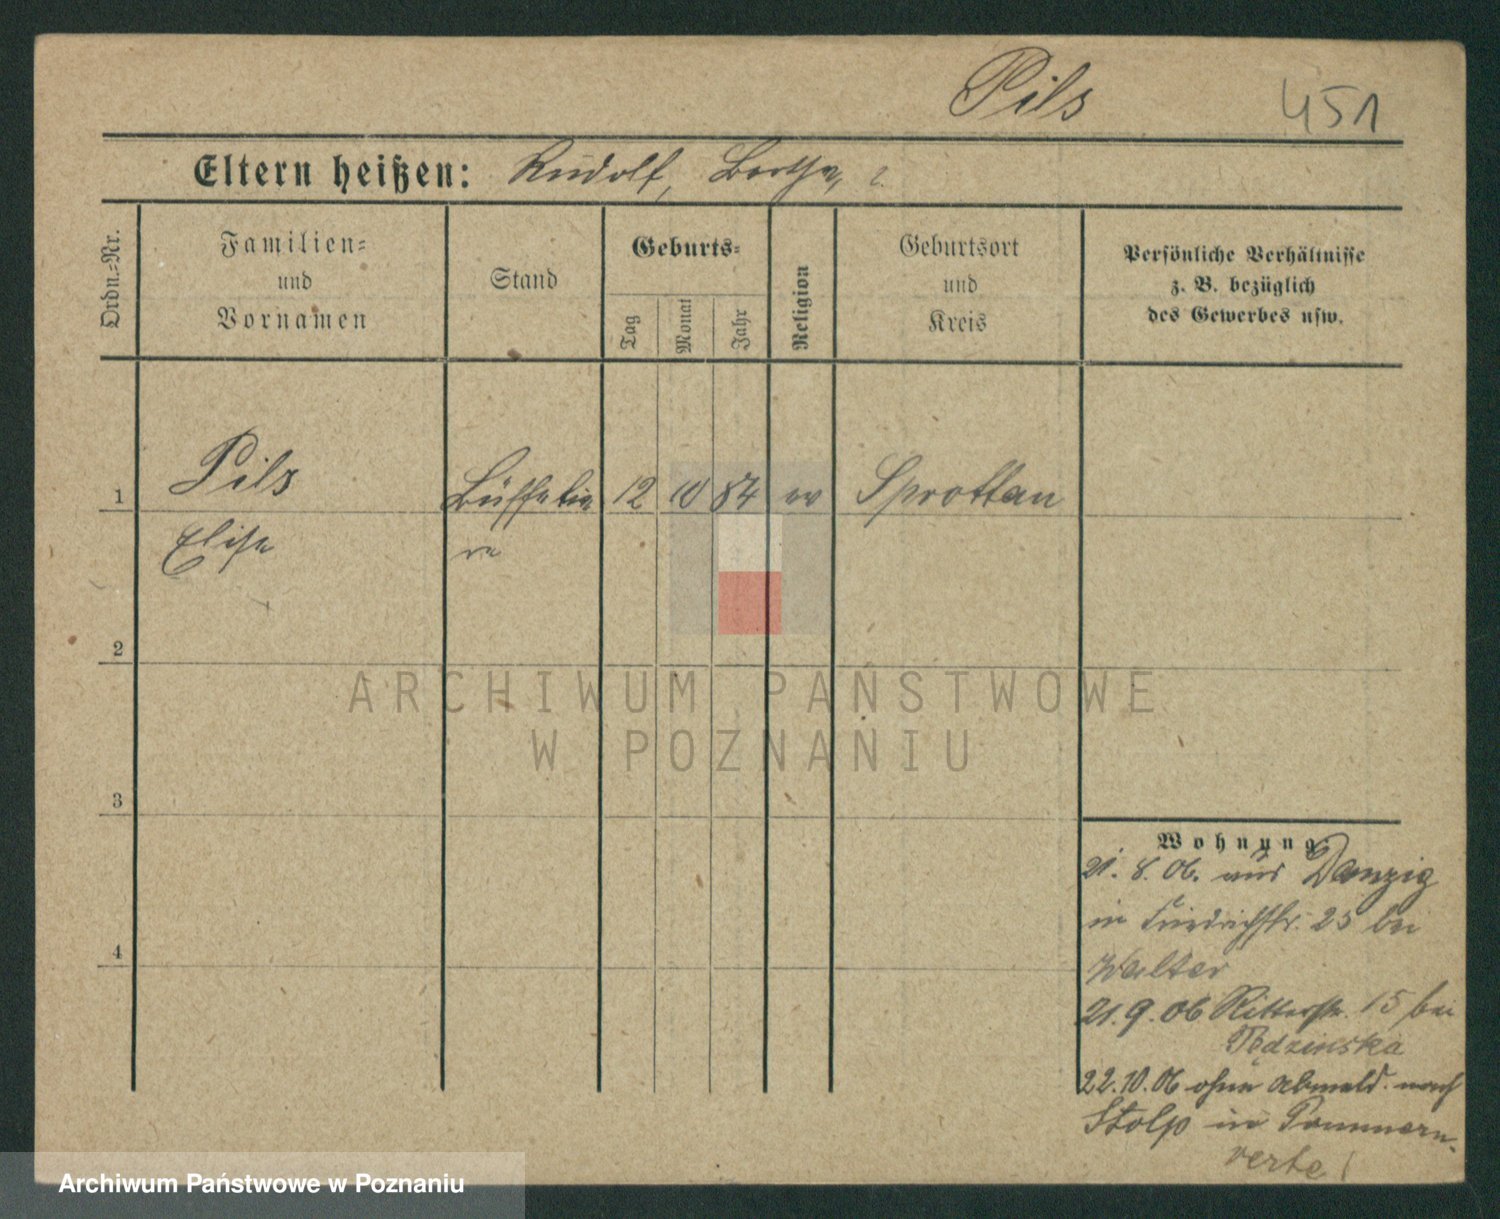 Pils 451
Eltern heißen: Rudolf, Bertha, ?
Ordn.-Nr.
Familien-
und
Vornamen
Stand
Geburts-
Tag
Monat
Jahr
Religion
Geburtsort
und
Kreis
Persönliche Verhältnisse
z. B. bezüglich
des Gewerbes usw.
1 Pils Büffetie 12 10 84 ev Sprottau
Elise re
2
ARCHIWUM PAŃSTWOWE
W POZNANIU
3
Wohnung
21. 8. 06. aus Danzig
in Friedrichstr. 25 bei
Walter
4
21. 9. 06 Ritterstr. 15 bei
22. 10. 06 ohne Abmeld. nach
Stolp in Pommern.
verte!
Archiwum Państwowe w Poznaniu